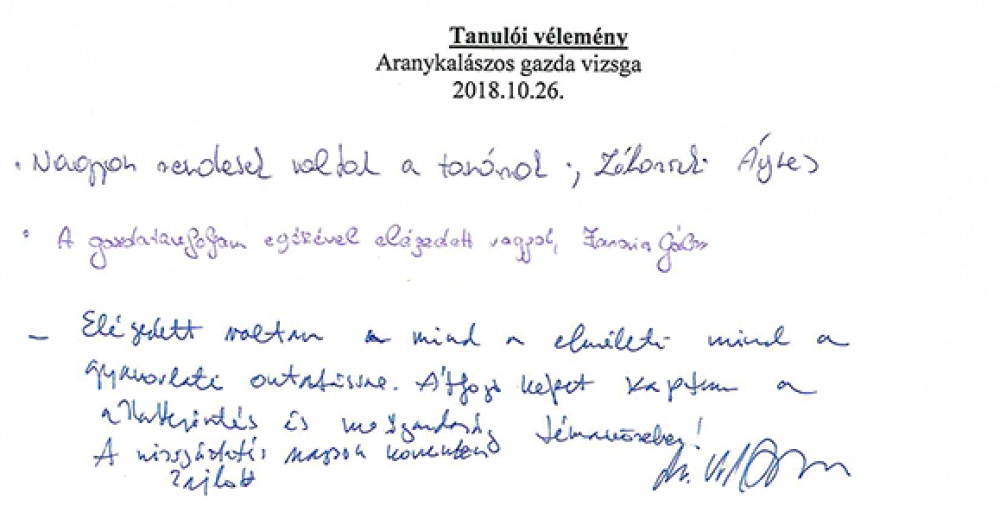 Tanulói vélemény
Aranykalászos gazda vizsga
2018.10.26.
• Nagyon rendesek voltak a tanárok ., Ágnes
• A gazdatanfolyam egészével elégedett vagyok, Gábor
– Elégedett voltam a mind a elméleti mind a
gyakorlati oktatással. Átfogó képet kaptam a
állattenyésztés és mezőgazdaság témaköreben!
A vizsgáztatás nagyon korrekten
zajlott